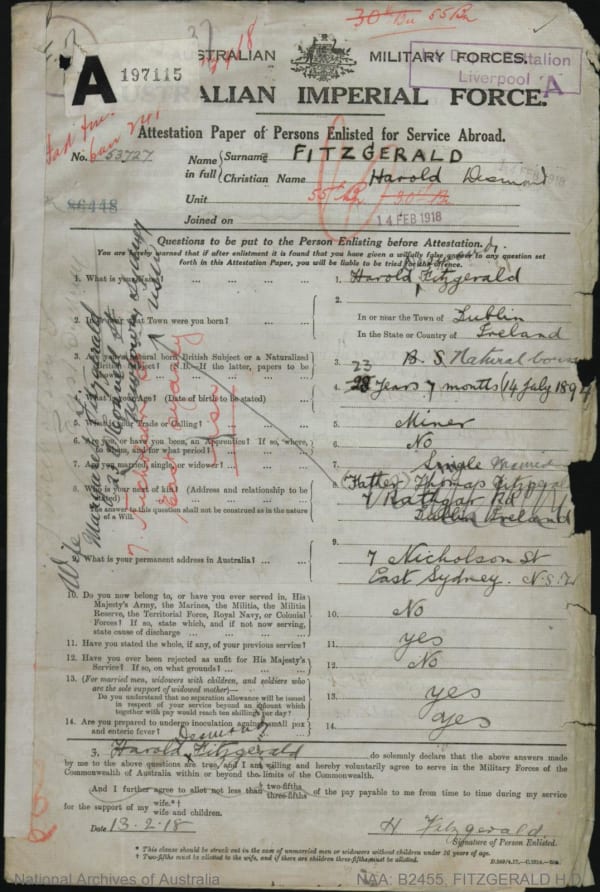 30th Bn 55 Bn
37
AUSTRALIAN MILITARY FORCES.
Liverpool A
A 197115
AUSTRALIAN IMPERIAL FORCE.
Attestation Paper of Persons Enlisted for Service Abroad.
No. 53727
Name in full
Surname FITZGERALD
Christian Name Harold Desmond
14 FEB 1918
Unit 55th Bn
Joined on 14 FEB 1918
Questions to be put to the Person Enlisting before Attestation.
You are hereby warned that if after enlistment it is found that you have given a wilfully false answer to any question set
forth in this Attestation Paper, you will be liable to be tried for the offence.
1. What is your Name? 1. Harold Fitzgerald
2. In or near what Town were you born? 2. In or near the Town of Dublin
In the State or Country of Ireland
3. Are you a natural born British Subject or a Naturalized
British Subject? N.B.—If the latter, papers to be
shown. 3. B. S. Natural born
4. What is your Age? (Date of birth to be stated) 4. 23 28 Years 7 months (14 July 1894
5. What is your Trade or Calling? 5. Miner
6. Are you, or have you been, an Apprentice? If so, where,
to whom, and for what period? 6. No
7. Are you married, single, or widower? 7. Single Married
8. Who is your next of kin? (Address and relationship to be
stated)
The answer to this question shall not be construed as in the nature
of a Will. 8. Father Thomas Fitzgerald
7 Rathgar Rd
Dublin Ireland
Wife
Margaret Fitzgerald
7 Nicholson St
East Sydney
NSW
9. What is your permanent address in Australia? 9. 7 Nicholson St
East Sydney. N.S.W
10. Do you now belong to, or have you ever served in, His
Majesty's Army, the Marines, the Militia, the Militia
Reserve, the Territorial Force, Royal Navy, or Colonial
Forces? If so, state which, and if not now serving,
state cause of discharge 10. No
11. Have you stated the whole, if any, of your previous service? 11. yes
12. Have you ever been rejected as unfit for His Majesty's
Service? If so, on what grounds? 12. No
13. (For married men, widowers with children, and soldiers who
are the sole support of widowed mother)—
Do you understand that no separation allowance will be issued
in respect of your service beyond an amount which
together with pay would reach ten shillings per day? 13. yes
14. Are you prepared to undergo inoculation against small pox
and enteric fever? 14. yes
Desmond
I, Harold Fitzgerald do solemnly declare that the above answers made
by me to the above questions are true, and I am willing and hereby voluntarily agree to serve in the Military Forces of the
Commonwealth of Australia within or beyond the limits of the Commonwealth.
And I further agree to allot not less than two-fifths three-fifths of the pay payable to me from time to time during my service
for the support of my wife.*†
wife and children.
Date 13-2-18 H Fitzgerald
Signature of Person Enlisted.
* This clause should be struck out in the case of unmarried men or widowers without children under 18 years of age.
† Two-fifths must be allotted to the wife, and if there are children three-fifths must be allotted.
National Archives of Australia NAA: B2455, FITZGERALD H D